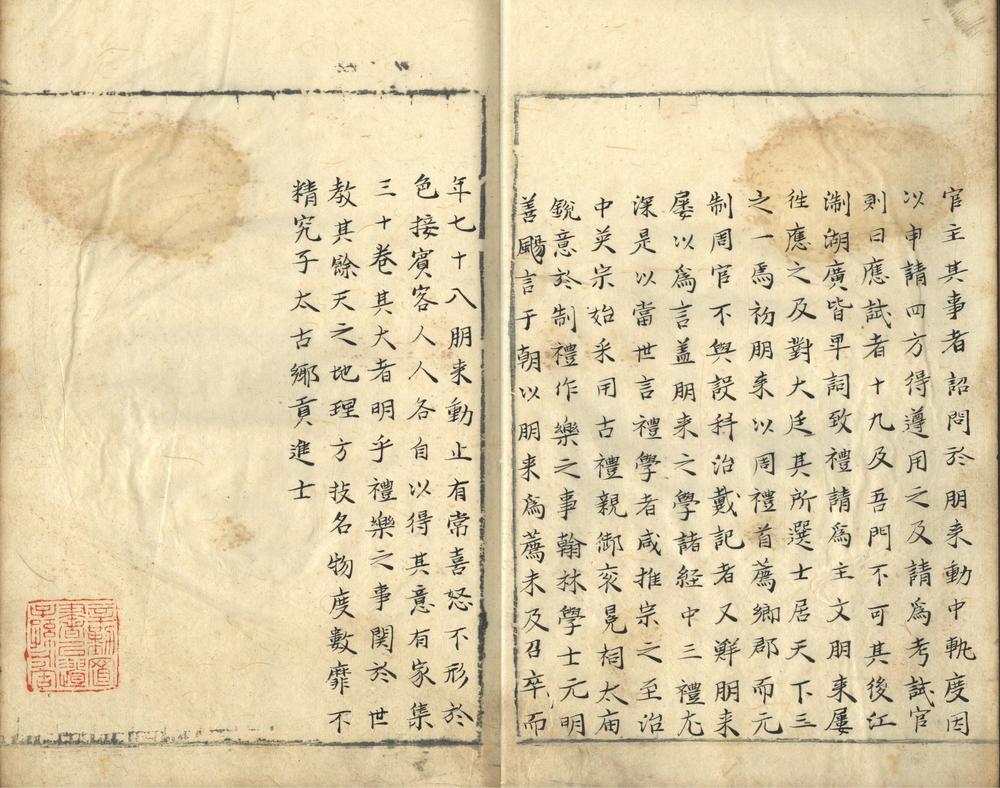 官主其事者詔問於朋来動中軌度因
以申請四方得遵用之及請爲考試官
則曰應試者十九及吾門不可其後江
淛湖廣皆早詞致禮請爲主文朋来屡
徃應之及對大廷其所選士居天下三
之一焉初朋来以周禮首薦鄉郡而元
制周官不與設科治戴記者又鮮朋来
屡以爲言蓋朋来之學諸経中三禮尤
深是以當世言禮學者咸推宗之至治
中英宗始采用古禮親御衮冕祠太庙
銳意於制禮作樂之事翰林學士元明
善颺言于朝以朋来爲薦未及召卒而
年七十八朋来動止有常喜怒不形於
色接賓客人人各自以得其意有家集
三十卷其大者明乎禮樂之事関於世
教其餘天之地理方技名物度數靡不
精究子太古鄉貢進士